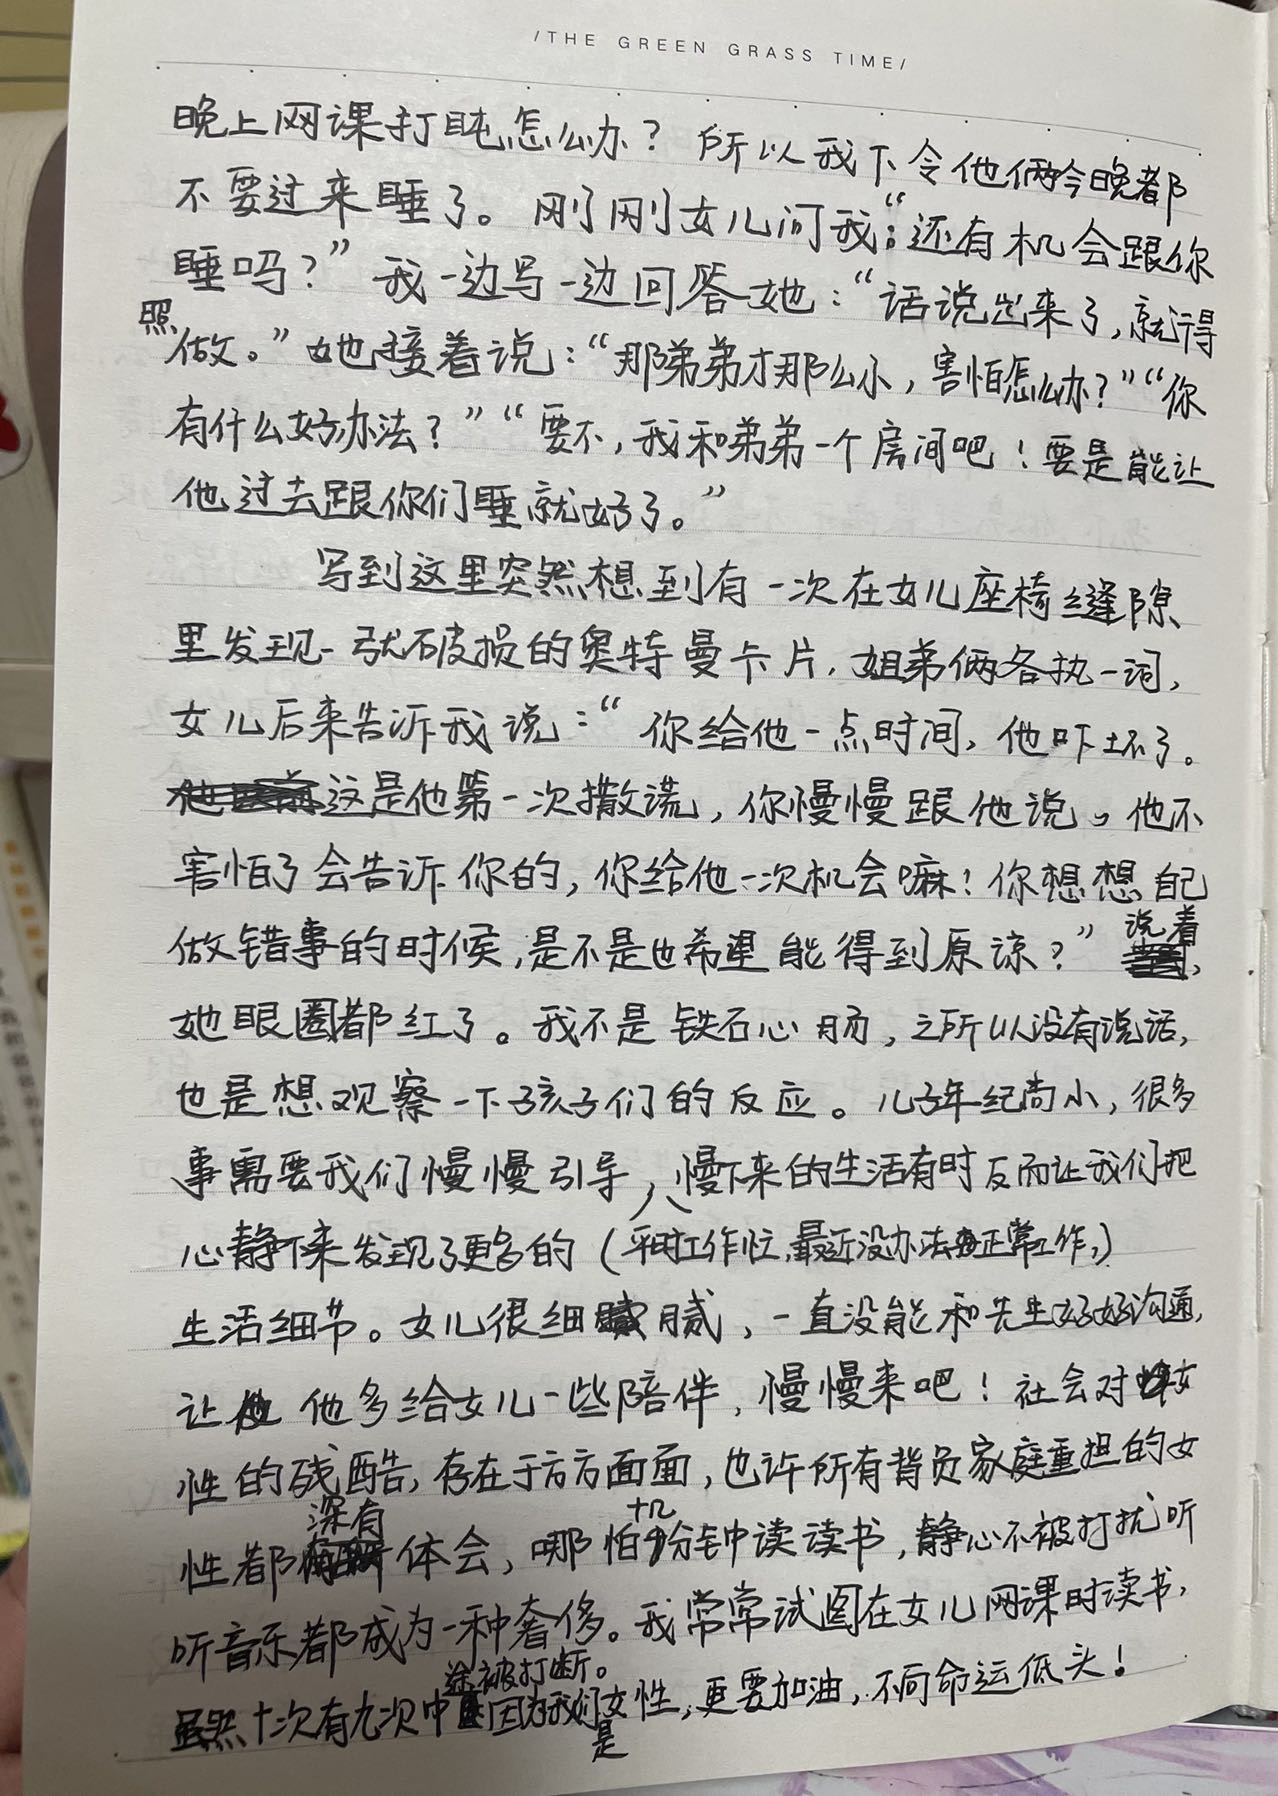 /THE GREEN GRASS TIME/
晚上网课打盹怎么办？所以我下令他俩今晚都
不要过来睡了。刚刚女儿问我：“还有机会跟你
睡吗？”我一边写一边回答她：“话说出来了，就得
照做。”她接着说：“那弟弟才那么小，害怕怎么办？”“你
有什么好办法？”“要不，我和弟弟一个房间吧！要是能让
他过去跟你们睡就好了。”
写到这里突然想到有一次在女儿座椅缝隙
里发现一张破损的奥特曼卡片，姐弟俩各执一词，
女儿后来告诉我说：“你给他一点时间，他吓坏了。
这是他第一次撒谎，你慢慢跟他说。他不
害怕了会告诉你的，你给他一次机会嘛！你想想自己
做错事的时候，是不是也希望能得到原谅？”说着，
她眼圈都红了。我不是铁石心肠，之所以没有说话，
也是想观察一下孩子们的反应。儿子年纪尚小，很多
事需要我们慢慢引导，慢下来的生活有时反而让我们把
心静下来发现了更多的（平时工作忙，最近没办法正常工作，）
生活细节。女儿很细腻，一直没能和先生好好沟通，
让他多给女儿一些陪伴，慢慢来吧！社会对女
性的残酷，存在于方方面面，也许所有背负家庭重担的女
性都深有体会，哪怕十几分钟读读书，静心不被打扰听
听音乐都成为一种奢侈。我常常试图在女儿网课时读书，
虽然十次有九次中途被打断。因为我们是女性，更要加油，不向命运低头！